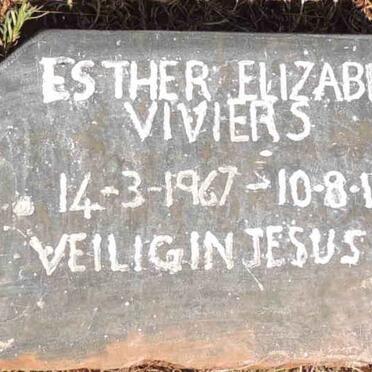 ESTHER ELIZAB
VIVIERS
14-3-1967-10.8.1
VEILIG IN JESUS